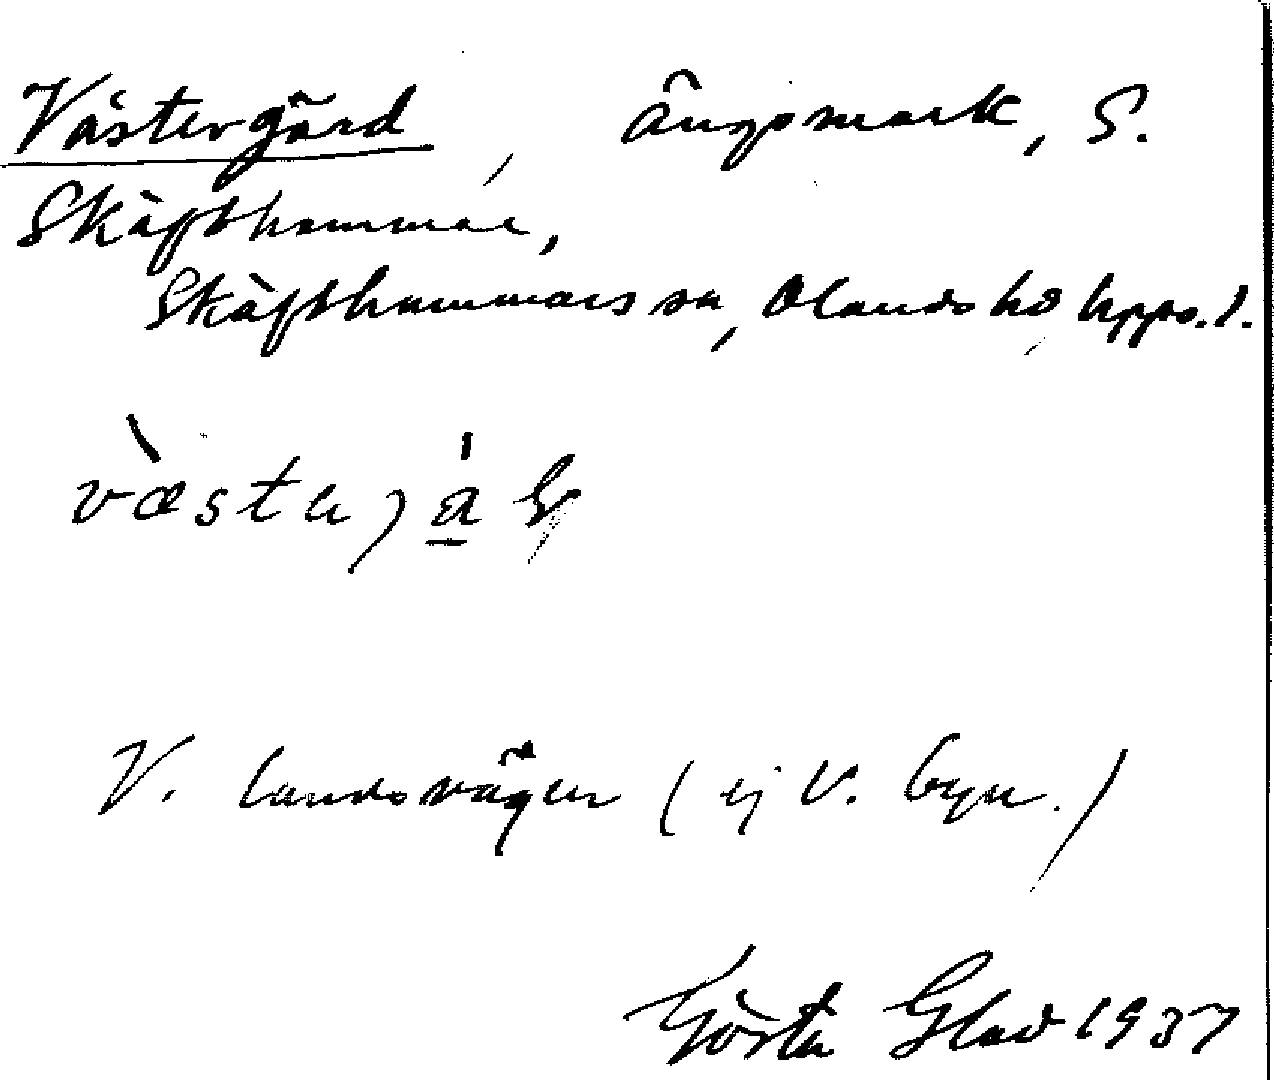 Västergärd, Ängsmark, S.
Skäfthammar,
Skäfthammars sn, Olands hd Upps. l.
V. landsvägen (ej V. byn.)
Gösta Glad 1937